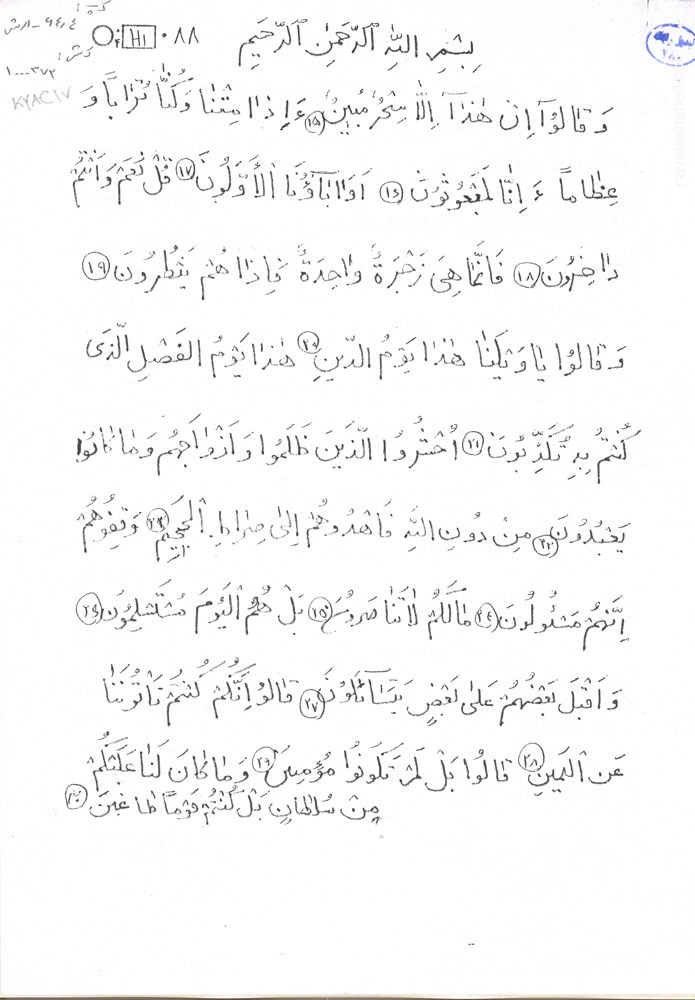 بِسْمِ اللَّهِ الرَّحْمَٰنِ الرَّحِيمِ
H1 ٠٨٨
وَ قالُوآ اِن هٰذآ اِلّا سِحْرٌ مُبِينٌ ١٥ ءَ اِ ذا مِتْنٰا وَ كُنّٰا تُرٰاباً وَ
عِظٰاماً ءَ اِنّٰا لَمَبْعُوثُونَ ١٦ اَوَ آبٰآؤُنَا الأَوَّلُونَ ١٧ قُلْ نَعَمْ وَ اَنْتُمْ
داخِرُونَ ١٨ فَاِنَّمٰا هِىَ زَجْرَةٌ واحِدَةٌ فَاِذا هُمْ يَنْظُرُونَ ١٩
وَ قالُوا يٰا وَيْلَنٰا هٰذا يَوْمُ الدّينِ ٢٠ هٰذا يَوْمُ الفَصْلِ الَّذى
كُنْتُمْ بِهِ تُكَذِّبُونَ ٢١ اُحْشُرُوا الَّذينَ ظَلَمُوا وَ اَزْواجَهُم وَ مٰا كٰانُوا
يَعْبُدُونَ ٢٢ مِنْ دُونِ اللَّهِ فَاهْدُوهُمْ اِلىٰ صِراطِ الْجَحِيمِ ٢٣ وَ قِفُوهُمْ
اِنَّهُمْ مَسْئُولُونَ ٢٤ مٰالَكُمْ لٰا تَنٰاصَرُونَ ٢٥ بَلْ هُمُ الْيَوْمَ مُسْتَسْلِمُونَ ٢٦
وَ اَقْبَلَ بَعْضُهُمْ عَلىٰ بَعْضٍ يَتَسٰآئَلُونَ ٢٧ قالُوا اِنَّكُمْ كُنْتُمْ تَأْتُونَنٰا
عَنِ الْيَمينِ ٢٨ قالُوا بَلْ لَمْ تَكُونُوا مُؤْمِنينَ ٢٩ وَ مٰا كانَ لَنٰا عَلَيْكُمْ
مِنْ سُلْطانٍ بَلْ كُنْتُمْ قَوْماً طاغينَ ٣٠
navideshahed